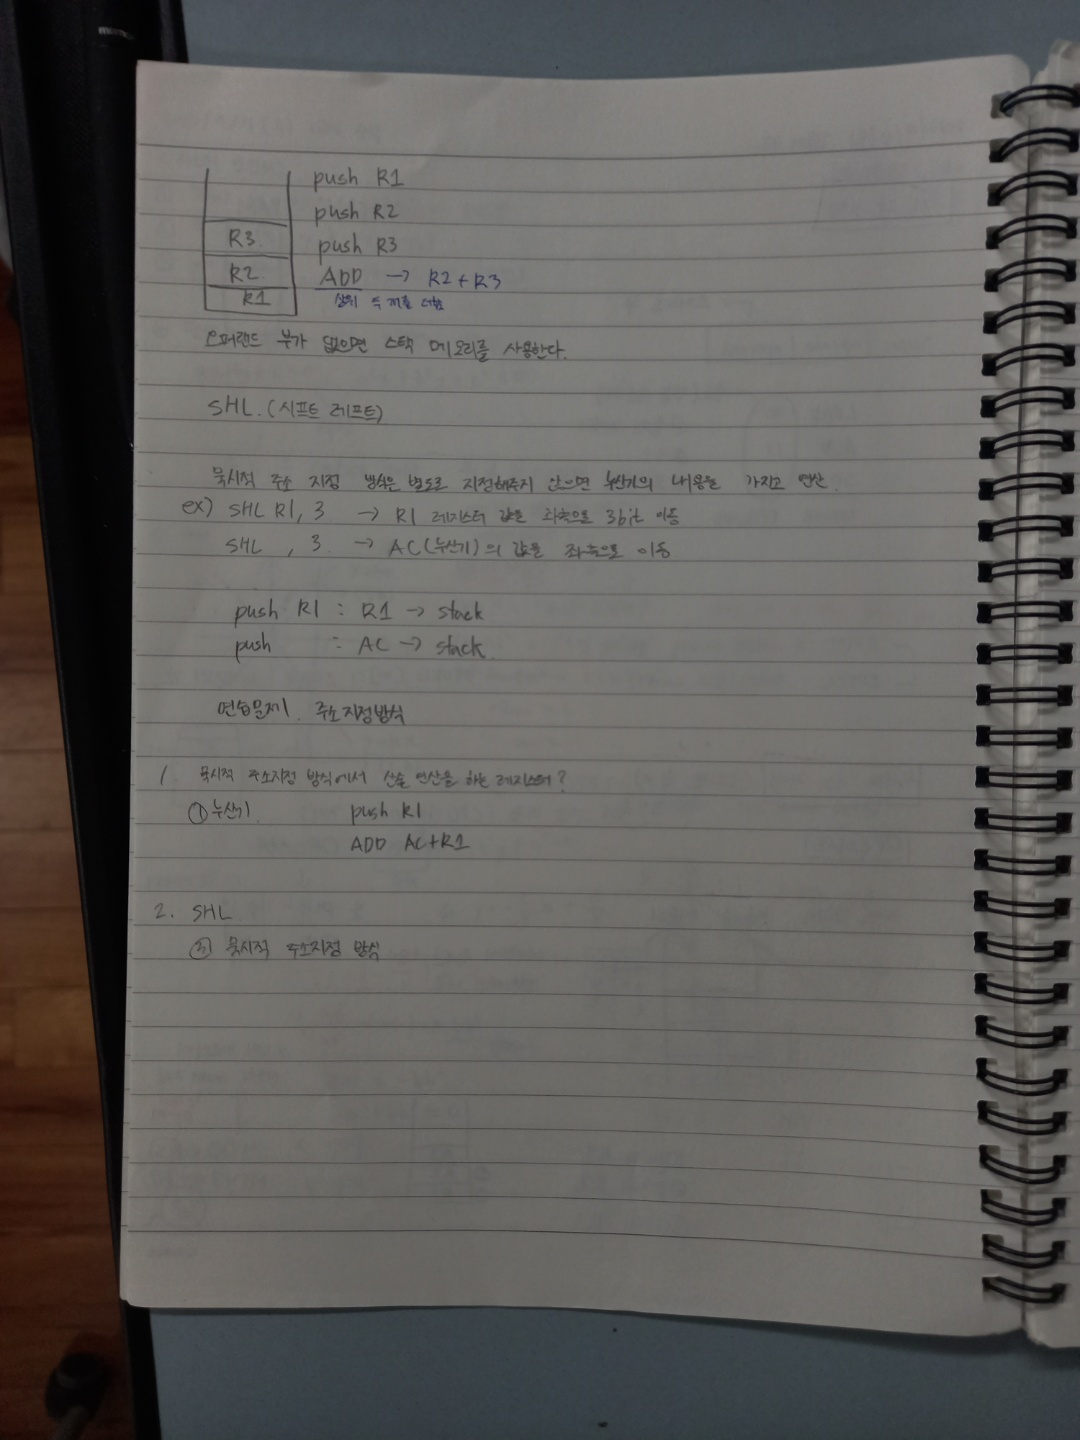 push R1
push R2
R3 push R3
R2 ADD → R2 + R3
R1 상위 두개를 더함
오퍼랜드 부가 없으면 스택 메모리를 사용한다.
SHL (시프트 레프트)
묵시적 주소 지정 방식은 별도로 지정해주지 않으면 누산기의 내용을 가지고 연산.
ex) SHL R1, 3 → R1 레지스터 값을 좌측으로 3bit 이동
SHL , 3 → AC(누산기)의 값을 좌측으로 이동
push R1 : R1 → stack
push : AC → stack
연습문제 주소지정방식
1. 묵시적 주소지정 방식에서 산술 연산을 하는 레지스터?
① 누산기 push R1
ADD AC+R1
2. SHL
묵시적 주소지정 방식